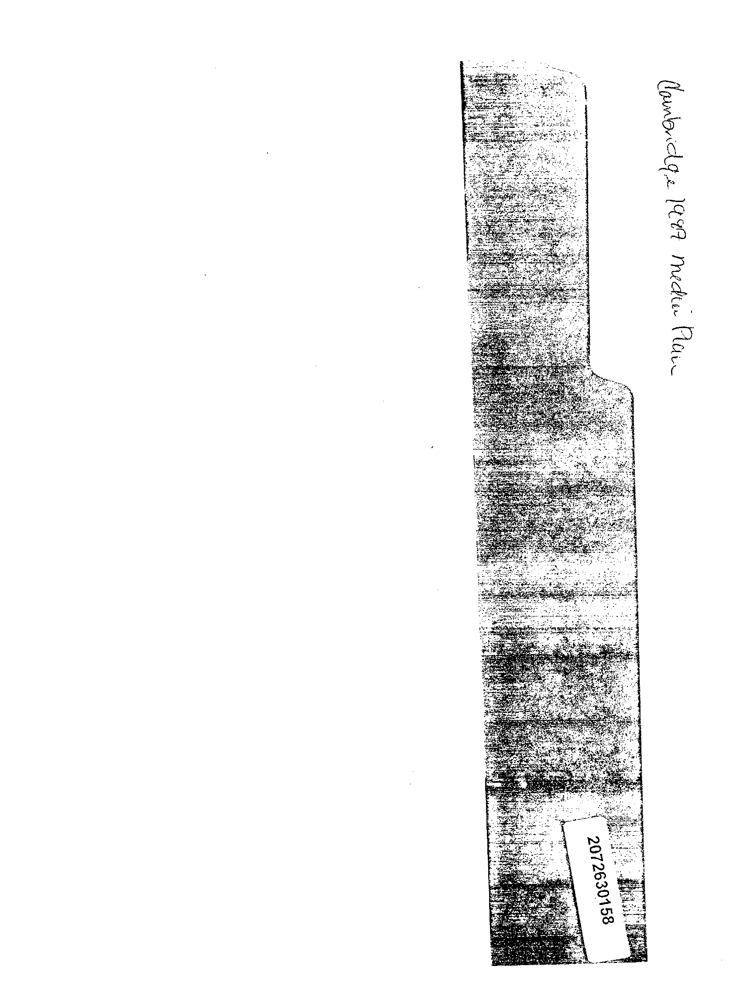 Cambridge 1989 Media Plan
2072630158